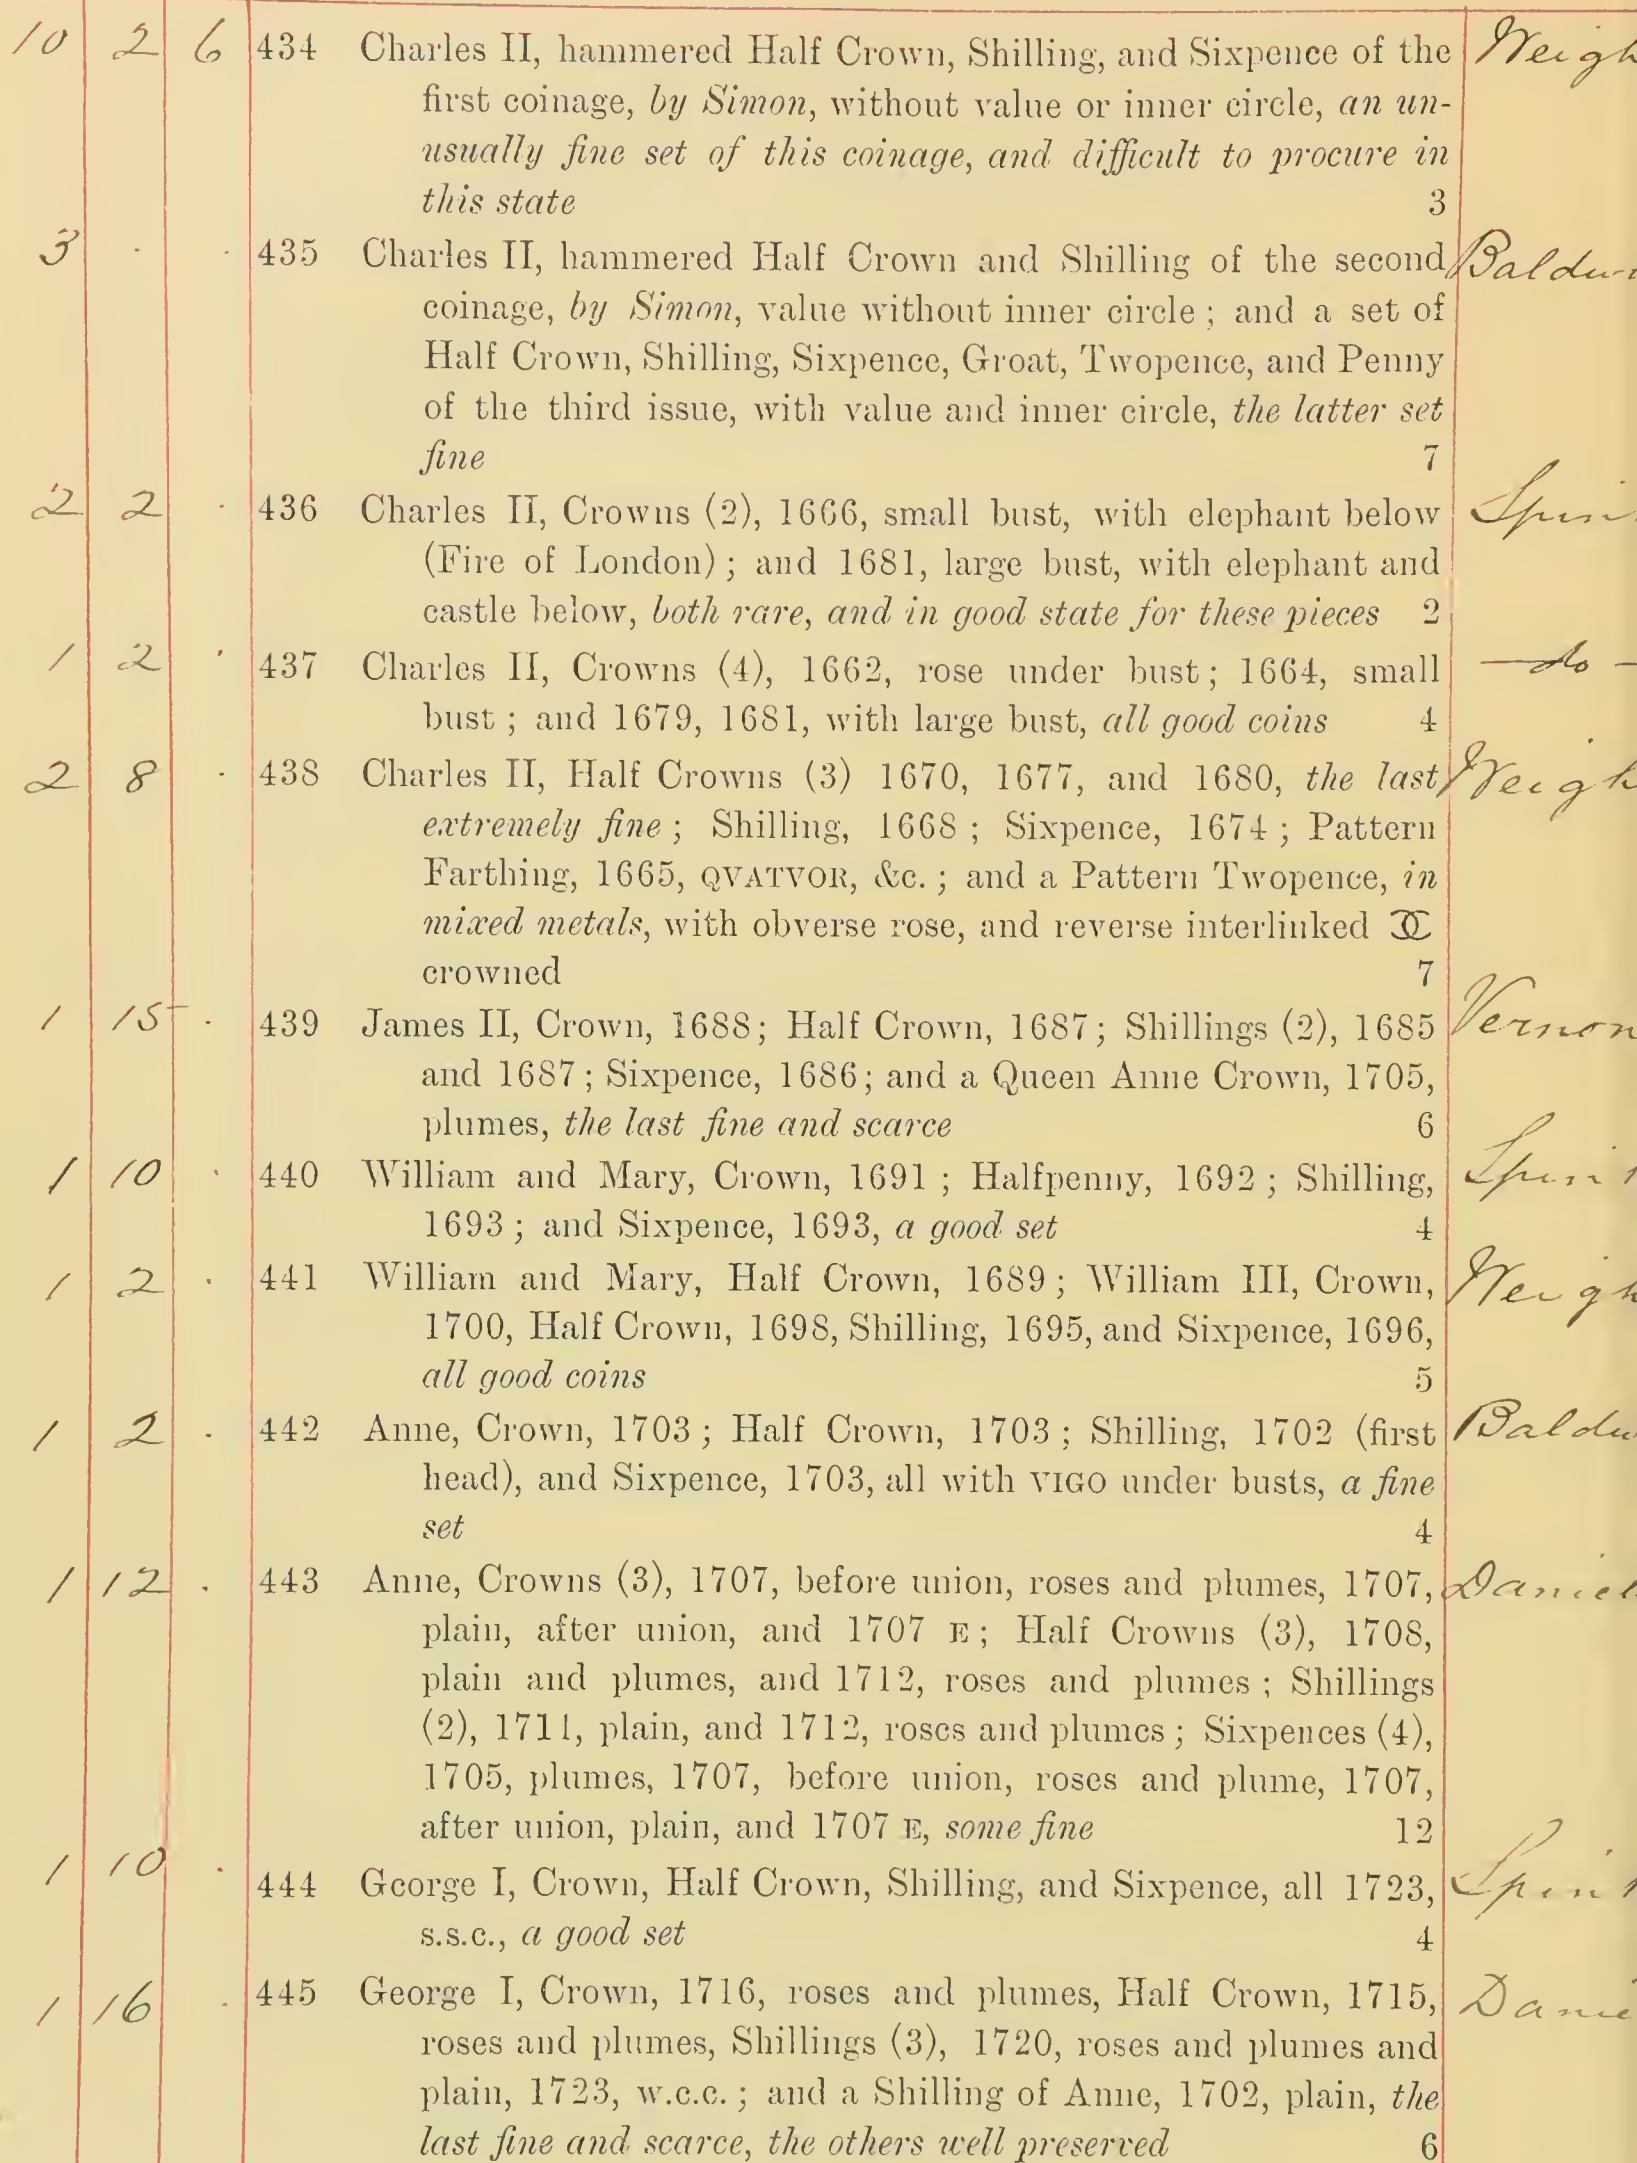 10 2 6 434 Charles II, hammered Half Crown, Shilling, and Sixpence of the Weigh
first coinage, by Simon, without value or inner circle, an un-
usually fine set of this coinage, and difficult to procure in
this state 3
3 . . 435 Charles II, hammered Half Crown and Shilling of the second Baldw
coinage, by Simon, value without inner circle ; and a set of
Half Crown, Shilling, Sixpence, Groat, Twopence, and Penny
of the third issue, with value and inner circle, the latter set
fine 7
2 2 . 436 Charles II, Crowns (2), 1666, small bust, with elephant below Spin
(Fire of London) ; and 1681, large bust, with elephant and
castle below, both rare, and in good state for these pieces 2
1 2 . 437 Charles II, Crowns (4), 1662, rose under bust ; 1664, small — do —
bust ; and 1679, 1681, with large bust, all good coins 4
2 8 . 438 Charles II, Half Crowns (3) 1670, 1677, and 1680, the last Weigh
extremely fine ; Shilling, 1668 ; Sixpence, 1674 ; Pattern
Farthing, 1665, QVATVOR, &c. ; and a Pattern Twopence, in
mixed metals, with obverse rose, and reverse interlinked CC
crowned 7
1 15 . 439 James II, Crown, 1688; Half Crown, 1687; Shillings (2), 1685 Vernon
and 1687; Sixpence, 1686; and a Queen Anne Crown, 1705,
plumes, the last fine and scarce 6
1 10 . 440 William and Mary, Crown, 1691 ; Halfpenny, 1692 ; Shilling, Spink
1693 ; and Sixpence, 1693, a good set 4
1 2 . 441 William and Mary, Half Crown, 1689 ; William III, Crown, Weigh
1700, Half Crown, 1698, Shilling, 1695, and Sixpence, 1696,
all good coins 5
1 2 . 442 Anne, Crown, 1703 ; Half Crown, 1703 ; Shilling, 1702 (first Baldw
head), and Sixpence, 1703, all with VIGO under busts, a fine
set 4
1 12 . 443 Anne, Crowns (3), 1707, before union, roses and plumes, 1707, Daniel
plain, after union, and 1707 E ; Half Crowns (3), 1708,
plain and plumes, and 1712, roses and plumes ; Shillings
(2), 1711, plain, and 1712, roses and plumes ; Sixpences (4),
1705, plumes, 1707, before union, roses and plume, 1707,
after union, plain, and 1707 E, some fine 12
1 10 . 444 George I, Crown, Half Crown, Shilling, and Sixpence, all 1723, Spink
s.s.c., a good set 4
1 16 . 445 George I, Crown, 1716, roses and plumes, Half Crown, 1715, Danie
roses and plumes, Shillings (3), 1720, roses and plumes and
plain, 1723, w.c.c. ; and a Shilling of Anne, 1702, plain, the
last fine and scarce, the others well preserved 6